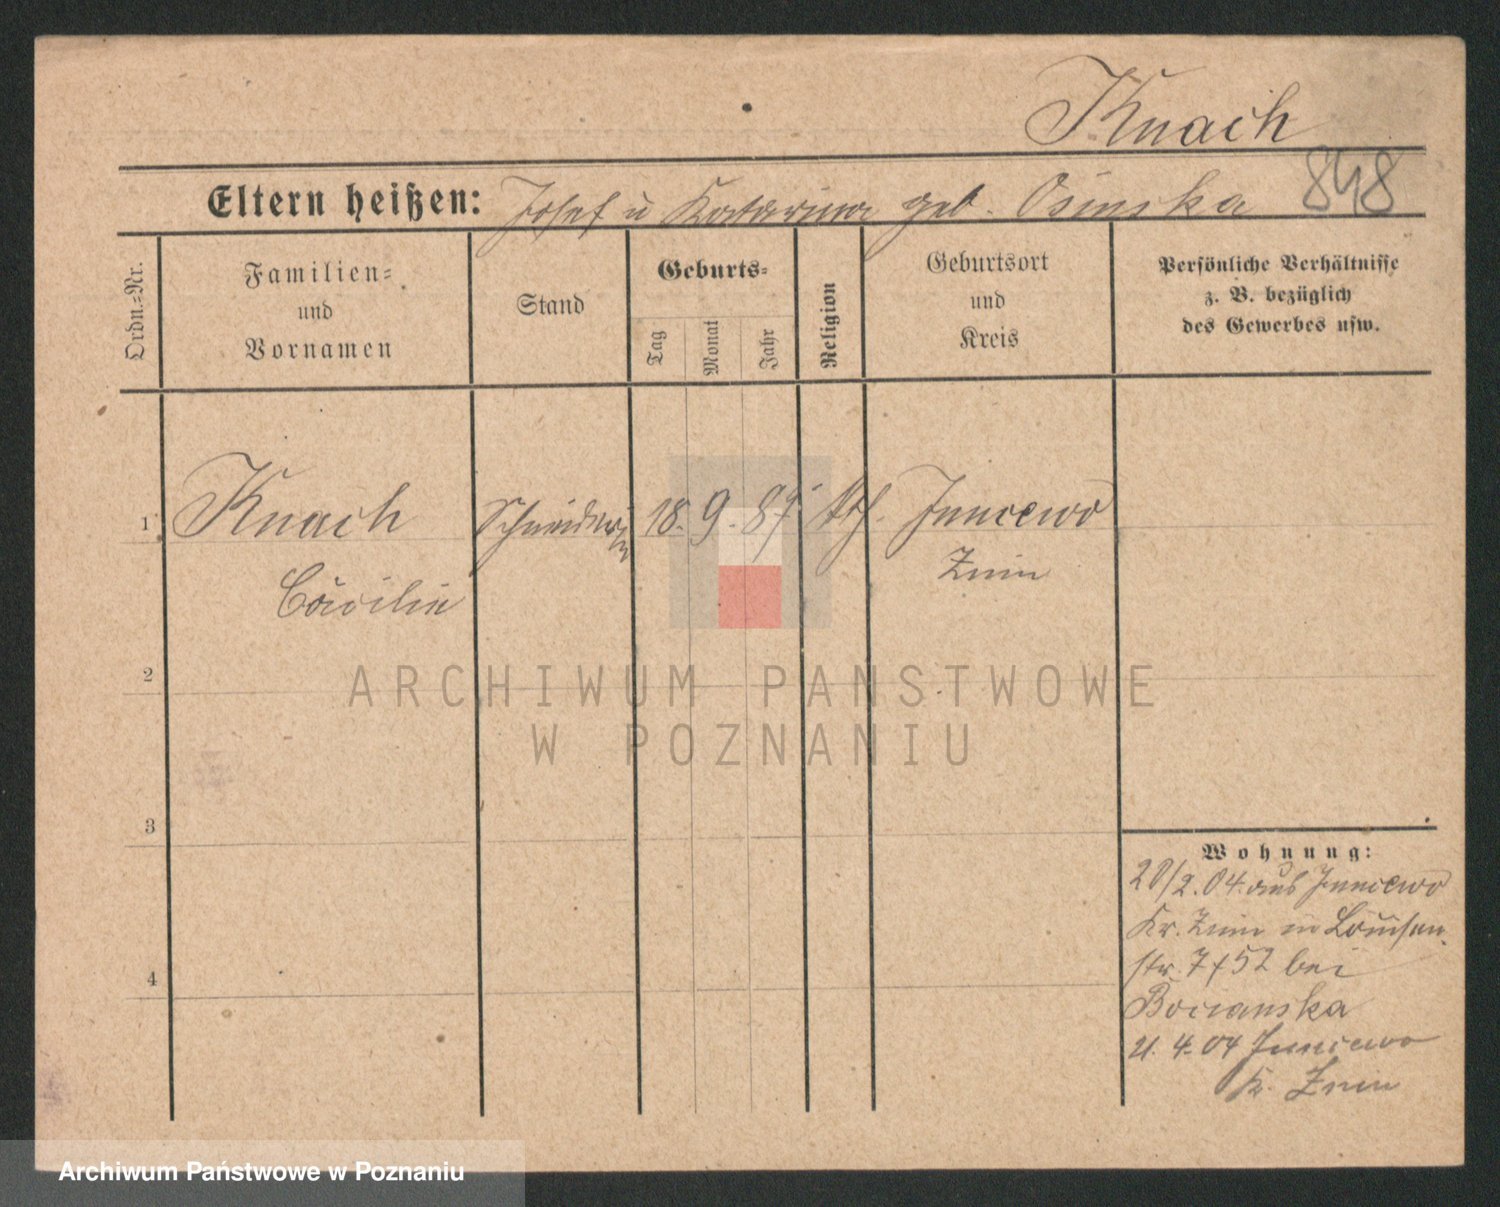 Knach
Eltern heißen: Josef u Katarina geb. Osinska 848
Ordn.=Nr.
Familien=
und
Vornamen
Stand
Geburts=
Tag
Monat
Jahr
Religion
Geburtsort
und
Kreis
Persönliche Verhältnisse
z. B. bezüglich
des Gewerbes usw.
1 Knach Schneiderin 18. 9. 87 kth. Juncewo
Cäcilie Znin
2
3
4
Wohnung:
20/2. 04. aus Juncewo
Kr. Znin in Louisen
str. 7 f 52 bei
Bocianska
4. 04 Juncewo
Kr. Znin
ARCHIWUM PAŃSTWOWE
W POZNANIU
Archiwum Państwowe w Poznaniu